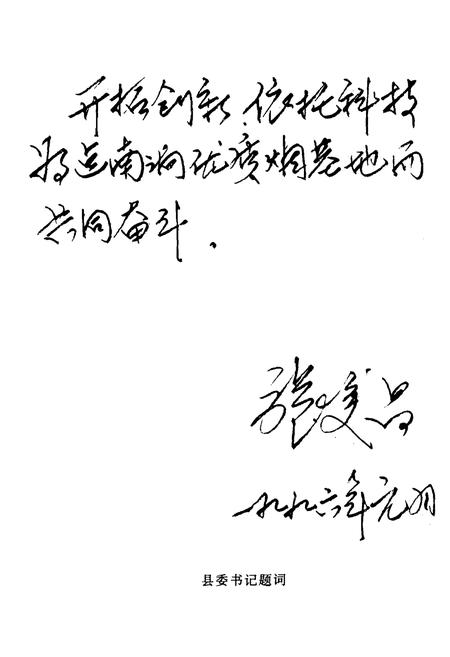 开拓创新、依托科技
为建南涧优质烟基地而
共同奋斗。
张 昌
一九九六年元月
县委书记题词